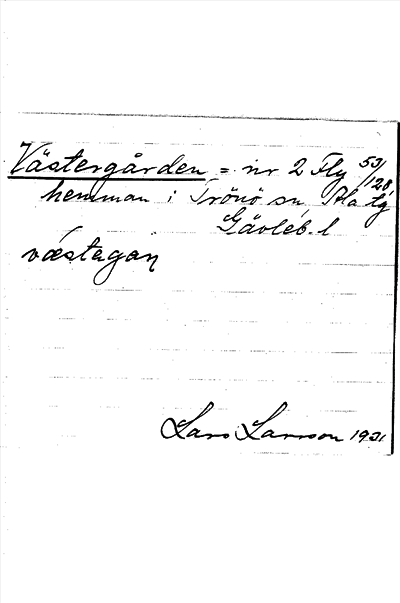 Västergården = nr 2 Fly 53/128
hemman i Trönö sn, Ala tg
Gävleb. l
væstagaɳ
Lars Larsson 1921